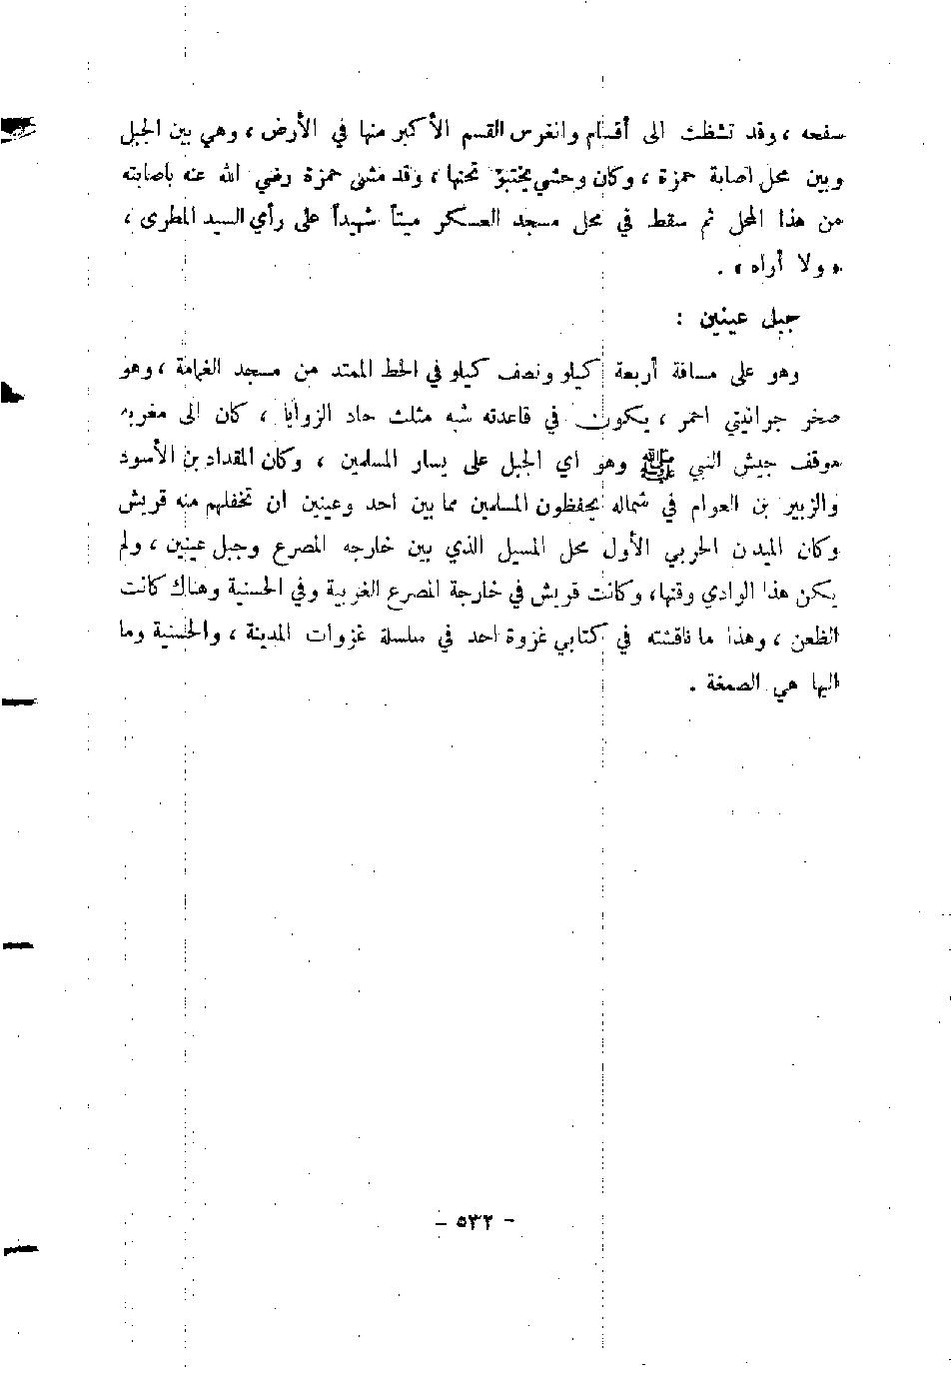 سفحه ، وقد تشظت الى أقسام وانغرس القسم الأكبر منها في الأرض ، وهي بين الجبل
وبين محل اصابة حمزة ، وكان وحشي يختبئ تحتها ، وقد مشى حمزة رضي الله عنه باصابته
من هذا المحل ثم سقط في محل مسجد العسكر ميتاً شهيداً على رأي السيد المطرى ،
« ولا أراه » .
جبل عينين :
وهو على مسافة أربعة كيلو ونصف كيلو في الخط الممتد من مسجد الغمامة ، وهو
صخر جرانيتي احمر ، يتكون في قاعدته شبه مثلث حاد الزوايا ، كان الى مغربه
موقف جيش النبي ﷺ وهو اي الجبل على يسار المسلمين ، وكان المقداد بن الأسود
والزبير بن العوام في شماله يحفظون المسلمين مما بين احد وعينين ان تخفلهم منه قريش
وكان الميدن الحربي الأول محل المسيل الذي بين خارجه المصرع وجبل عينين ، ولم
يكن هذا الوادي وقتها، وكانت قريش في خارجة المصرع الغربية وفي الحسنية وهناك كانت
الظعن ، وهذا ما ناقشته في كتابي غزوة احد في سلسلة غزوات المدينة ، والحسنية وما
اليها هي الصمغة .
- ٥٣٢ -